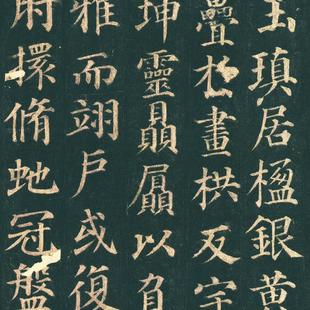 玉瑱居楹銀黄
疊扵畫栱反宇
坤靈贔屭以負
雅而翊戶或復
肘擐脩虵冠盤